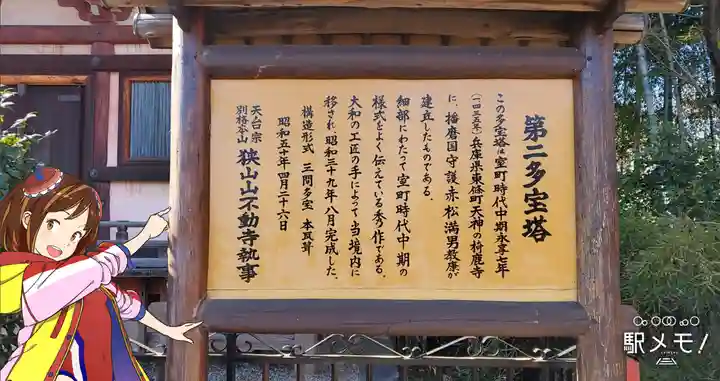 第二多宝塔
この多宝塔は室町時代中期永享七年
(一四三五年)兵庫県東條町天神の椅鹿寺
に、播磨国守護赤松満男教康が
建立したものである。
細部にわたって室町時代中期の
様式をよく伝えている秀作である。
大和の工匠の手によって当境内に
移され、昭和三十九年八月完成した。
構造形式 三間多宝 本瓦葺
昭和五十年四月二十六日
天台宗
別格本山 狭山山不動寺執事
駅メモ!